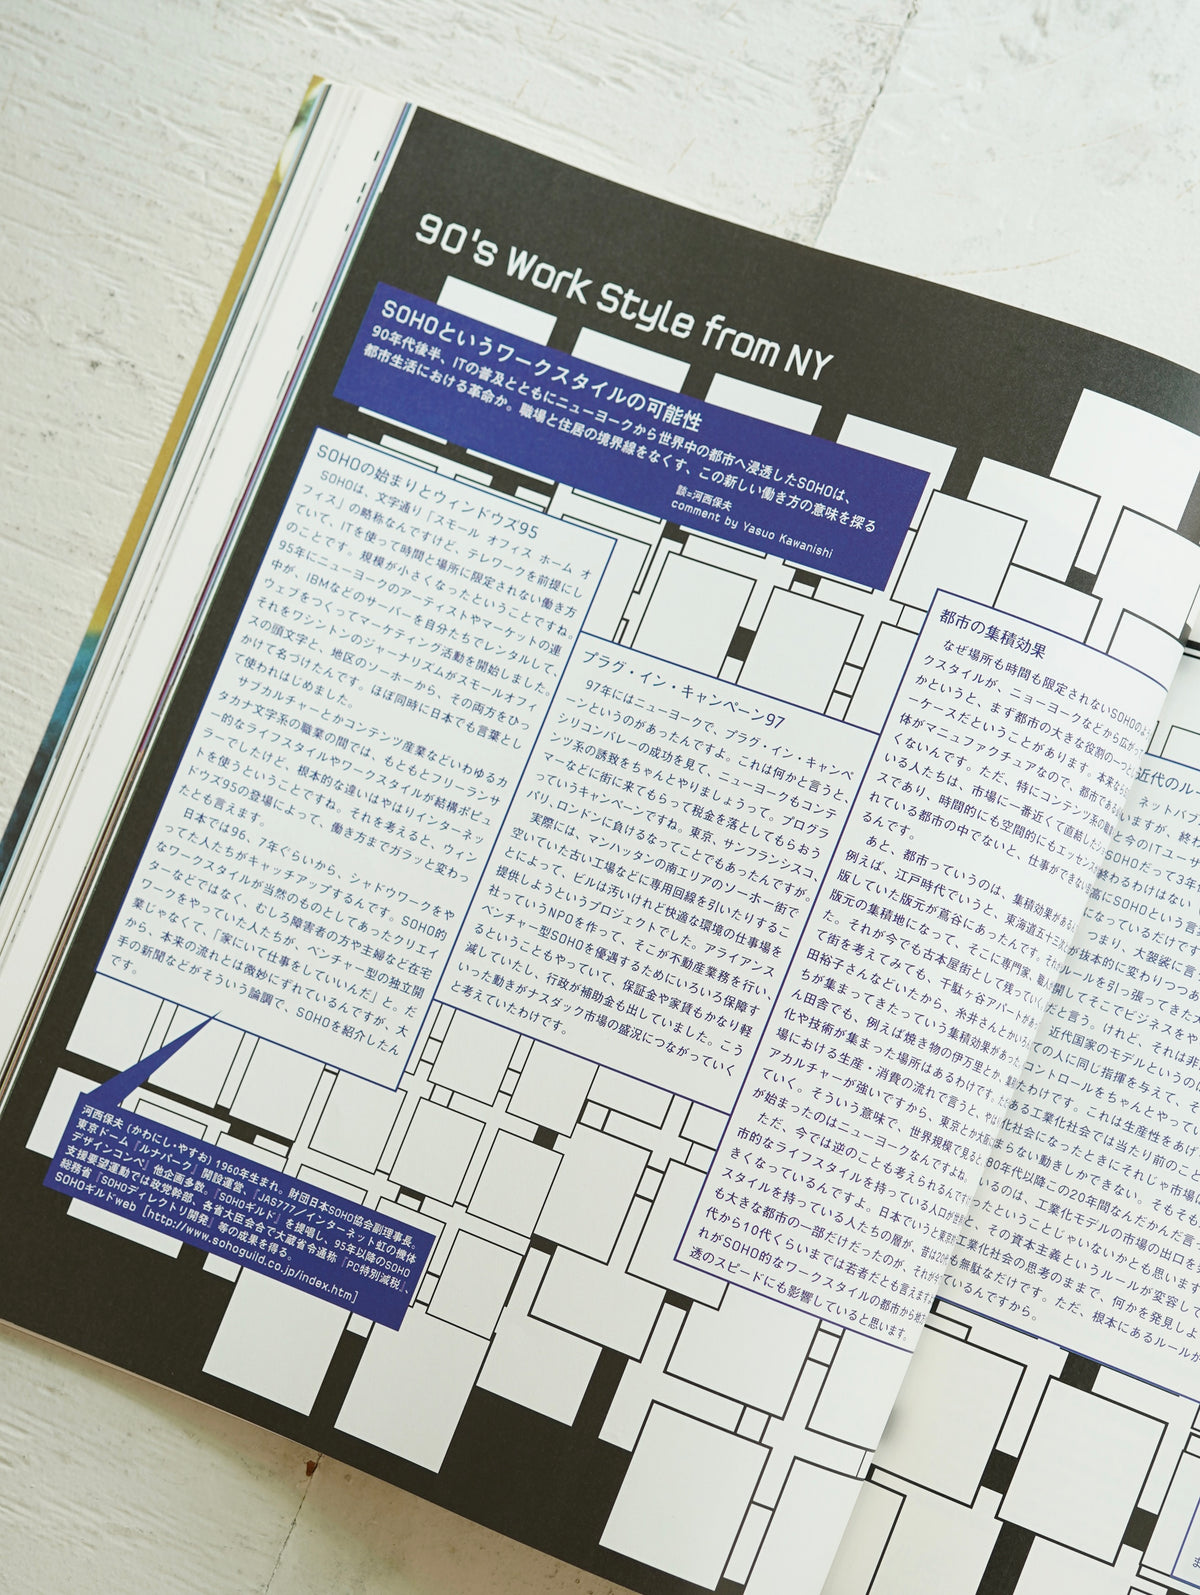 90's Work Style from NY
SOHOというワークスタイルの可能性
90年代後半、ITの普及とともにニューヨークから世界中の都市へ浸透したSOHOは、
都市生活における革命か。職場と住居の境界線をなくす、この新しい働き方の意味を探る
談=河西保夫
comment by Yasuo Kawanishi
SOHOの始まりとウィンドウズ95
SOHOは、文字通り「スモール オフィス ホーム オ
フィス」の略称なんですけど、テレワークを前提にし
ていて、ITを使って時間と場所に限定されない働き方
のことです。規模が小さくなったということですね。
95年にニューヨークのアーティストやマーケットの連
中が、IBMなどのサーバーを自分たちでレンタルして、
ウェブをつくってマーケティング活動を開始しました。
それをワシントンのジャーナリズムがスモールオフィ
スの頭文字と、地区のソーホーから、その両方をひっ
かけて名づけたんです。ほぼ同時に日本でも言葉とし
て使われはじめました。
サブカルチャーとかコンテンツ産業などいわゆるカ
タカナ文字系の職業の間では、もともとフリーランサ
ー的なライフスタイルやワークスタイルが結構ポピュ
ラーでしたけど、根本的な違いはやはりインターネッ
トを使うということですね。それを考えると、ウィン
ドウズ95の登場によって、働き方までガラッと変わっ
たとも言えます。
日本では96、7年ぐらいから、シャドウワークをや
ってた人たちがキャッチアップするんです。SOHO的
なワークスタイルが当然のものとしてあったクリエイ
ターなどではなく、むしろ障害者の方や主婦など在宅
ワークをやっていた人たちが、ベンチャー型の独立開
業じゃなくて、「家にいて仕事をしていいんだ」と。だ
から、本来の流れとは微妙にずれているんですが、大
手の新聞などがそういう論調で、SOHOを紹介したん
です。
河西保夫(かわにし・やすお)1960年生まれ。財団日本SOHO協会副理事長。
東京ドーム『ルナパーク』開設運営、『JAS777/インターネット虹の機体
デザインコンペ』他企画多数。『SOHOギルド』を提唱し、95年以降のSOHO
支援要望運動では政党幹部、各省大臣会合で大蔵省令通称『PC特別減税』、
総務省『SOHOディレクトリ開発』等の成果を得る。
SOHOギルドweb [http://www.sohoguild.co.jp/index.htm]
プラグ・イン・キャンペーン97
97年にはニューヨークで、プラグ・イン・キャンペ
ーンというのがあったんですよ。これは何かと言うと、
シリコンバレーの成功を見て、ニューヨークもコンテ
ンツ系の誘致をちゃんとやりましょうって。プログラ
マーなどに街に来てもらって税金を落としてもらおう
っていうキャンペーンですね。東京、サンフランシスコ、
パリ、ロンドンに負けるなってことでもあったんですが。
実際には、マンハッタンの南エリアのソーホー街で
空いていた古い工場などに専用回線を引いたりするこ
とによって、ビルは汚いけれど快適な環境の仕事場を
提供しようというプロジェクトでした。アライアンス
社っていうNPOを作って、そこが不動産業務を行い、
ベンチャー型SOHOを優遇するためにいろいろ保障す
るということもやっていて、保証金や家賃もかなり軽
減していたし、行政が補助金も出していました。こう
いった動きがナスダック市場の盛況につながっていく
と考えていたわけです。
都市の集積効果
なぜ場所も時間も限定されないSOHOのよう
クスタイルが、ニューヨークなどから広がって
かというと、まず都市の大きな役割の一つと
ーケースだということがあります。本来なら
体がマニュファクチュアなので、都市である
くないんです。ただ、特にコンテンツ系の
いる人たちは、市場に一番近くて直結した
スであり、時間的にも空間的にもエッセンス
れている都市の中でないと、仕事ができない
るんです。
あと、都市っていうのは、集積効果がある
例えば、江戸時代でいうと、東海道五十三次
版していた版元が蔦谷にあったんです。
版元の集積地になって、そこに専門家、職人
た。それが今でも古本屋街として残っていく
て街を考えてみても、千駄ヶ谷アパートが
田裕子さんなどいたから、糸井さんとかいろ
ちが集まってきたっていう集積効果があった。
ん田舎でも、例えば焼き物の伊万里とか、
化や技術が集まった場所はあるわけです。
場における生産・消費の流れで言うと、やは
アカルチャーが強いですから、東京とか大阪に
ていく。そういう意味で、世界規模で見ると
が始まったのはニューヨークなんですよね。
ただ、今では逆のことも考えられるんです
市的なライフスタイルを持っている人口が
きくなっているんですよ。日本でいうと東京
スタイルを持っている人たちの層が、昔は20代
も大きな都市の一部だけだったのが、それが今
代から10代くらいまでは若者だとも言えますよ
れがSOHO的なワークスタイルの都市から地方
透のスピードにも影響していると思います。
近代のルー
ネットバブ
いますが、終わ
と今のITユーサ
SOHOだって3年
終わるわけはない
高にSOHOという言
になっているだけでそ
つまり、大袈裟に言
が抜本的に変わりつつあ
ルールを引っ張ってきた大
開してそこでビジネスをや
だと言う。けれど、それは非
近代国家のモデルというのは
ての人に同じ指揮を与えて、そ
コントロールをちゃんとやってい
たわけです。これは生産性をあげ
ある工業化社会では当たり前のこと
化社会になったときにそれじゃ市場は
まらない動きしかできない。そもそも
80年代以降この20年間なんだかんだ言っ
いるのは、工業化モデルの市場の出口を
ったということじゃないかとも思います
と、その資本主義というルールが変容して
工業化社会の思考のままで、何かを発見しよ
も無駄なだけです。ただ、根本にあるルールが
ているんですから。